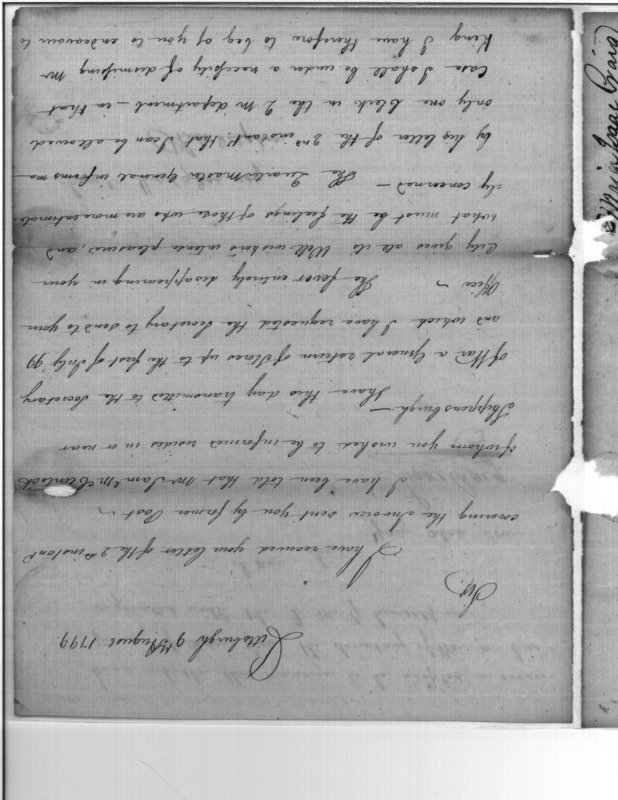 Pittsburgh 9th August 1799
Sir,
I have received your letter of the 2nd instant
covering the Invoices sent you by former Post ~
I have been told that Mr Sam McClintock
of whom you wished to be informed resides in or near
Shippensburgh —
I have this day transmitted to the Secretary
of War a General return of Stores up to the first of July 99
and which I have requested the Secretary to send to your
Office ~ The fever entirely disappearing in your
City gives all its Well wishers intense pleasure, and
what must be the feelings of those who are more
ily concerned — The Quarter Master General informs me
by his letter of the 2nd instant that I can be allowed
only one Clerk in the 2 M department — in that
Case I shall be under a necessity of dismissing Mr
King I have therefore to beg of you to endeavour to
Major Isaac Craig